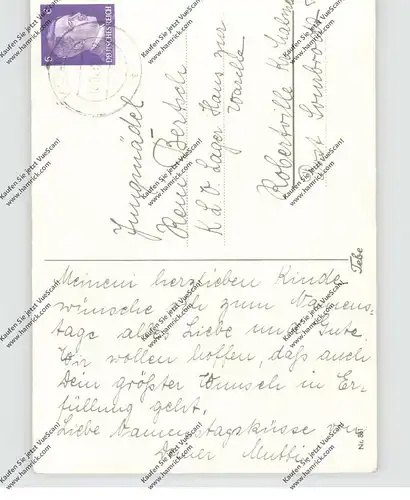 DEUTSCHES REICH
6 6
Jungmädel
Reni Bertsch
K L V. Lager Haus zur
Warche
Robertville b. Malmedy
Post
Meinem herzlieben Kinde
wünsche ich zum Namens-
tage alles Liebe und Gute.
Wir wollen hoffen, daß auch
Dein größter Wunsch in Er-
füllung geht.
Liebe Namenstagsküsse von
Deiner Mutti
Tebe
Kaufen Sie jetzt VueScan!
www.hamrick.com